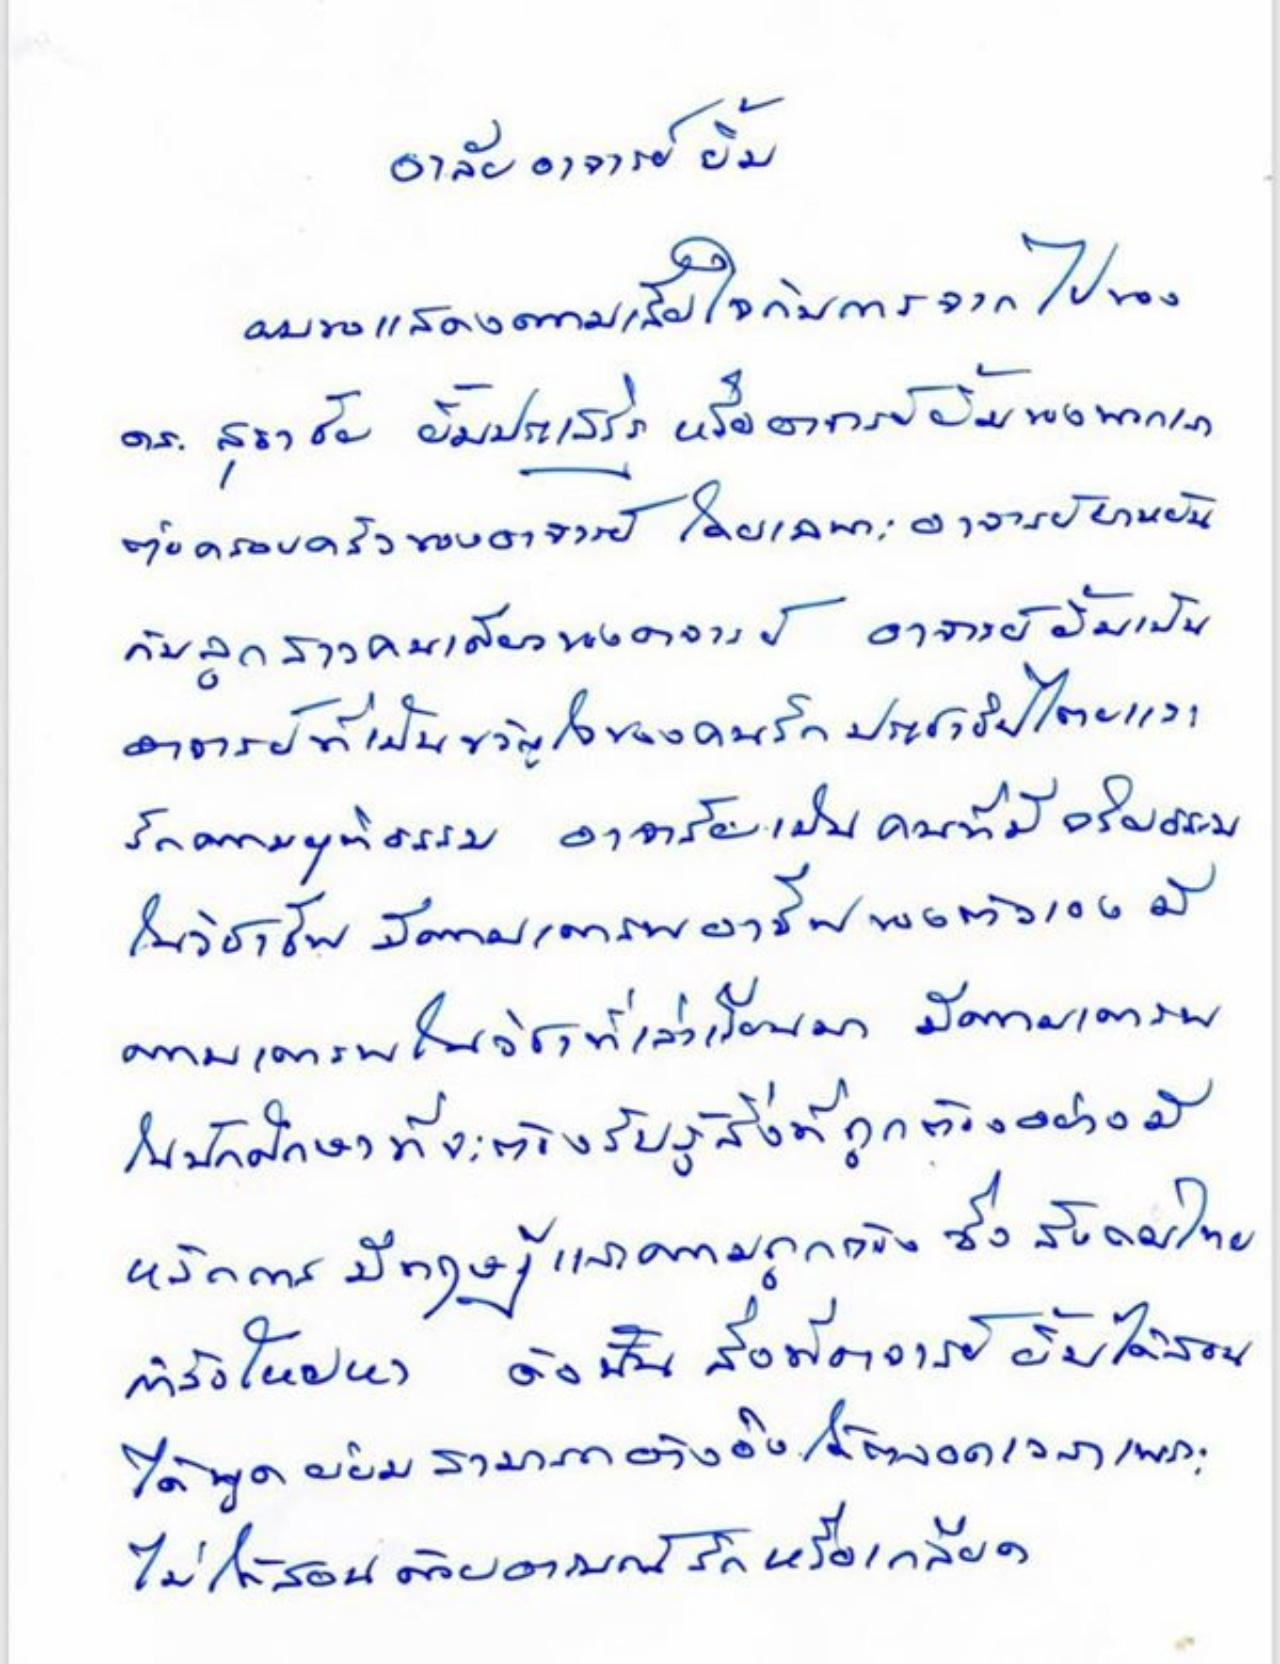 อาลัยอาจารย์ ยิ้ม
ผมขอแสดงความเสียใจกับการจากไปของ
ดร. สุธาชัย ยิ้มประเสริฐ หรืออาจารย์ยิ้มของพวกเรา
ต่อครอบครัวของอาจารย์ โดยเฉพาะอาจารย์
กับลูกสาวคนเดียวของอาจารย์ อาจารย์ยิ้มเป็น
อาจารย์ที่เป็นขวัญใจของคนรักประชาธิปไตยและ
รักความยุติธรรม อาจารย์เป็นคนที่มีจริยธรรม
ในวิชาชีพ มีความเคารพอาชีพของตัวเอง มี
ความเคารพในวิชาที่เล่าเรียนมา มีความเคารพ
ในนักศึกษาที่จะต้องรับรู้สิ่งที่ถูกต้องอย่างมี
หลักการ มีทฤษฎีและความถูกต้อง ซึ่งสังคมไทย
กำลังโหยหา ดังนั้น สิ่งที่อาจารย์ ยิ้มได้สอน
ได้พูด ย่อมสามารถอ้างอิงได้ตลอดเวลาเพราะ
ไม่ได้สอนด้วยอารมณ์รักหรือเกลียด